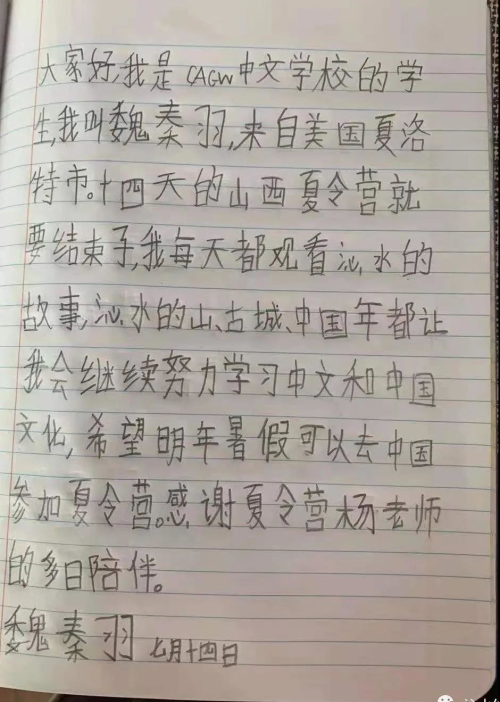 大家好,我是CAGW中文学校的学
生,我叫魏秦羽,来自美国夏洛
特市。十四天的山西夏令营就
要结束了,我每天都观看沁水的
故事,沁水的山、古城、中国年都让
我会继续努力学习中文和中国
文化,希望明年暑假可以去中国
参加夏令营。感谢夏令营杨老师
的多日陪伴。
魏秦羽 七月十四日